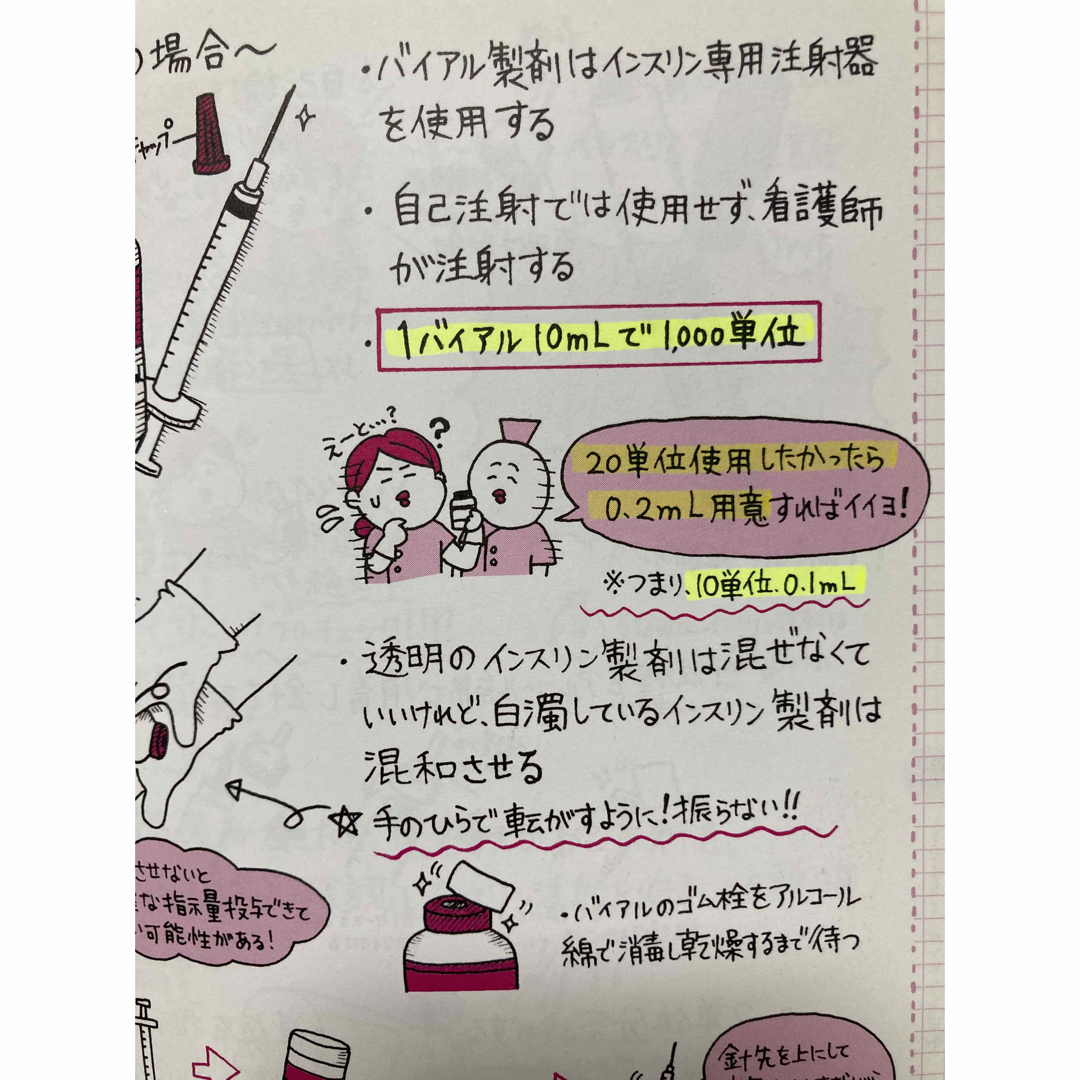 の場合〜
キャップ
・バイアル製剤はインスリン専用注射器
を使用する
・自己注射では使用せず、看護師
が注射する
・1バイアル10mLで1,000単位
えーと…?
?
20単位使用したかったら
0.2mL用意すればイイヨ!
※つまり、10単位、0.1mL
・透明のインスリン製剤は混ぜなくて
いいけれど、白濁しているインスリン製剤は
混和させる
☆手のひらで転がすように!振らない!!
させないと
な指示量投与できて
可能性がある!
・バイアルのゴム栓をアルコール
綿で消毒し乾燥するまで待つ
針先を上にして